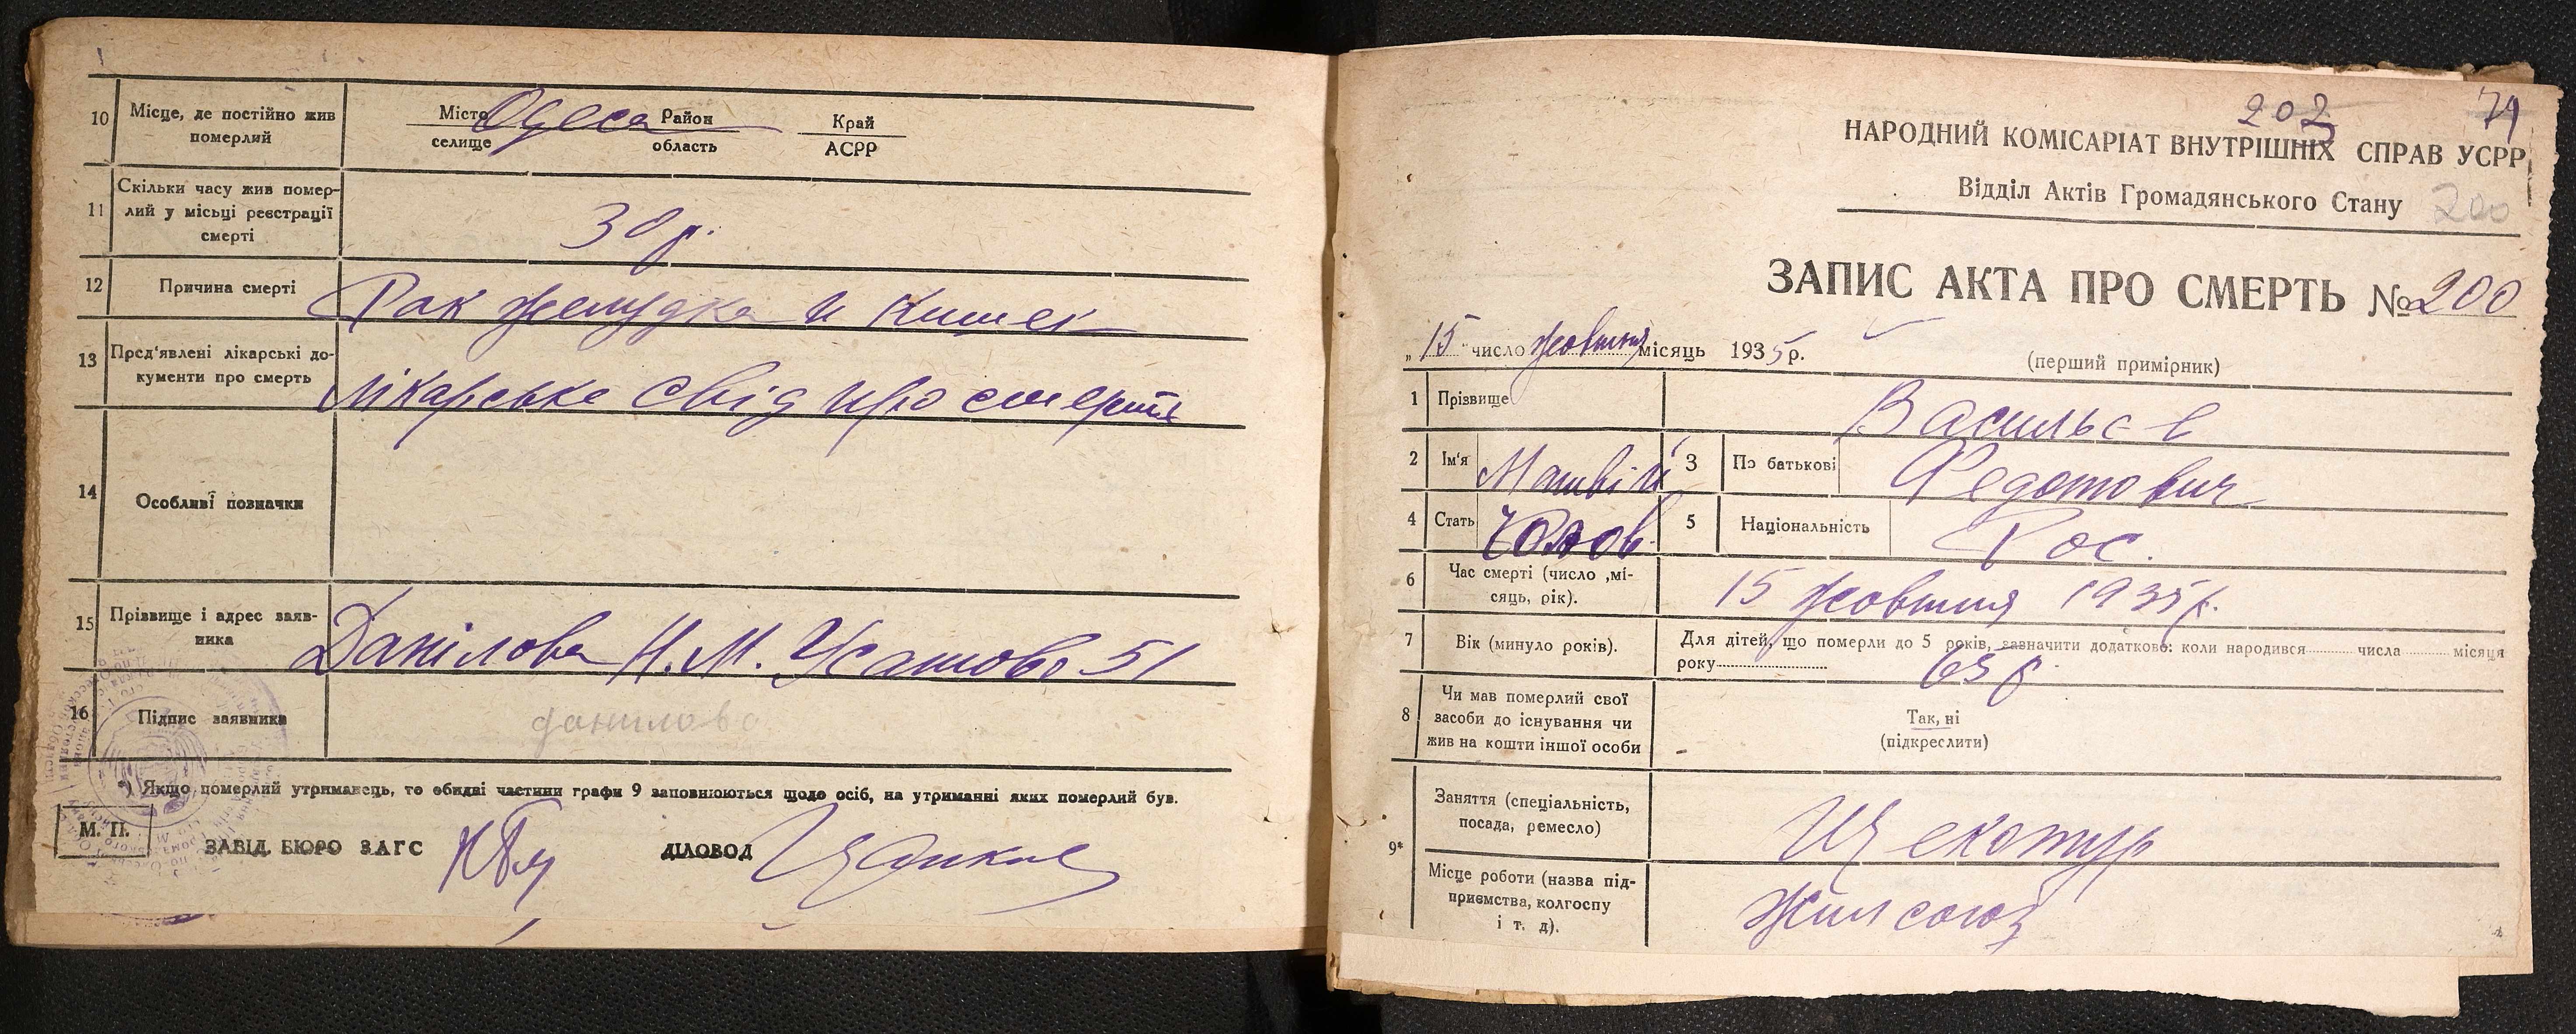 10 Місце, де постійно жив
померлий
Місто Одеса Район Край
селище область АСРР
11 Скільки часу жив помер-
лий у місці реєстрації
смерті
30 р.
12 Причина смерті Рак желудка и кишек
13 Пред'явлені лікарські до-
кументи про смерть
лікарське свід про смерть
14 Особливі позначки
15 Прізвище і адрес заяв-
ника
Данілова Н. М. Усатово 51
16 Підпис заявника данилова
*) Якщо померлий утриманець, то обидві частини графи 9 заповнюються щодо осіб, на утриманні яких померлий був.
М. П.
ЗАВІД. БЮРО ЗАГС ДІЛОВОД
202 74
НАРОДНИЙ КОМІСАРІАТ ВНУТРІШНІХ СПРАВ УСРР
Відділ Актів Громадянського Стану 200
ЗАПИС АКТА ПРО СМЕРТЬ № 200
„15" число жовтня місяць 1935 р. (перший примірник)
1 Прізвище Васильєв
2 Ім'я Матвій 3 По батькові Федотович
4 Стать Чолов. 5 Національність Рос.
6 Час смерті (число ,мі-
сяць, рік).
15 жовтня 1935 р.
7 Вік (минуло років). Для дітей, що померли до 5 років, зазначити додатково: коли народився числа місяця
року 65 р.
8 Чи мав померлий свої
засоби до існування чи
жив на кошти іншої особи
Так, ні
(підкреслити)
9* Заняття (спеціальність,
посада, ремесло)
Щекотур
Місце роботи (назва під-
приємства, колгоспу
і т. д).
Жилсоюз